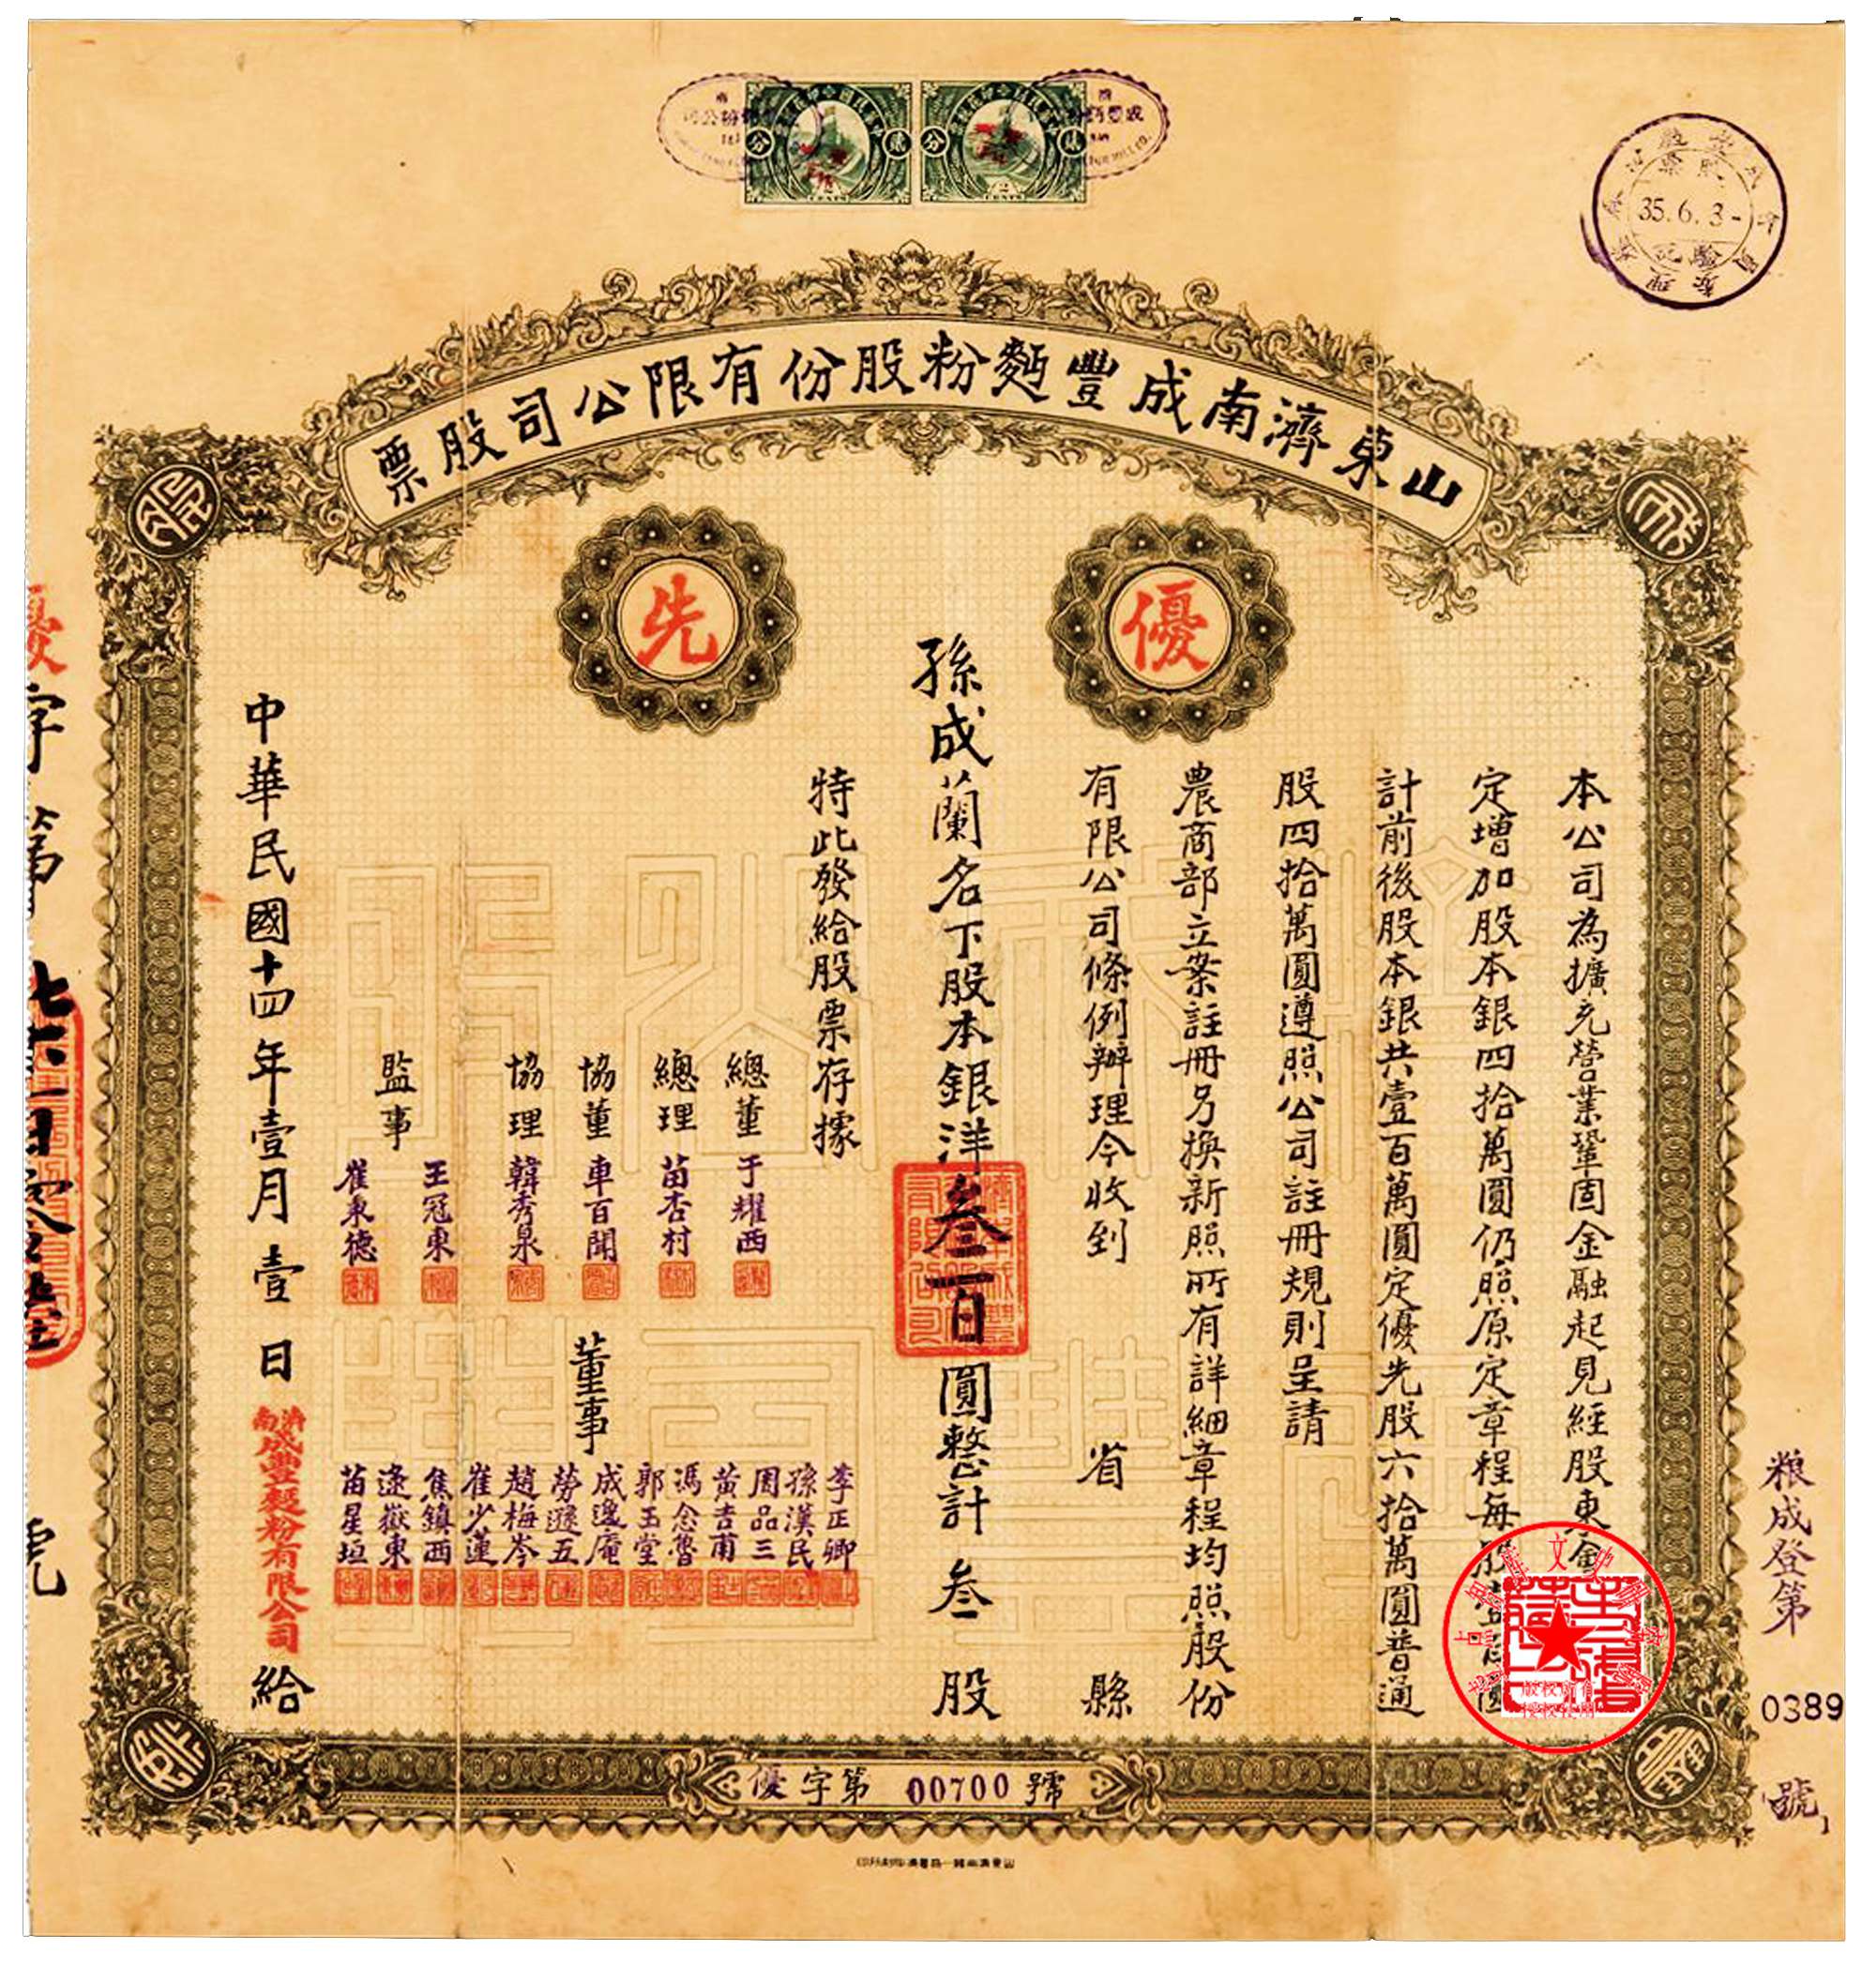 山東濟南成豐麪粉股份有限公司股票
優先
本公司為擴充營業鞏固金融起見經股東會
定增加股本銀四拾萬圓仍照原定章程每股壹百圓
計前後股本銀共壹百萬圓定優先股六拾萬圓普通
股四拾萬圓遵照公司註冊規則呈請
農商部立案註冊另換新照所有詳細章程均照股份
有限公司條例辦理今收到 省 縣
孫成蘭名下股本銀洋叁百圓整計叁股
特此發給股票存據
總董 于耀西
總理 苗杏村
協董 車百聞
協理 韓秀泉
監事 王冠東 崔秉德
董事
李正卿
孫漢民
周品三
黃吉甫
馮念魯
郭玉堂
成逸庵
勞遜五
趙梅岑
崔少蓮
焦鎮西
逯嶽東
苗星垣
中華民國十四年壹月壹日
濟南成豐麪粉有限公司 給
優字第 00700 號
35.6.3-
粮成登第
0389
號
優字第
號
分 貳
2
CENTS
分 貳
2
CENTS
版权所有
授权使用